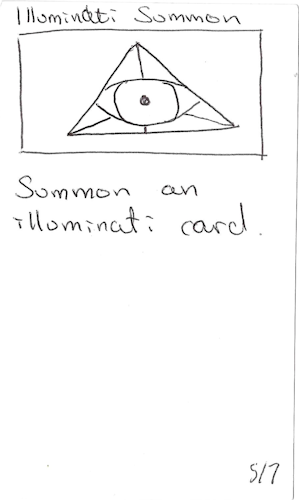 Illuminati Summon
Summon an
illuminati card.
5/7